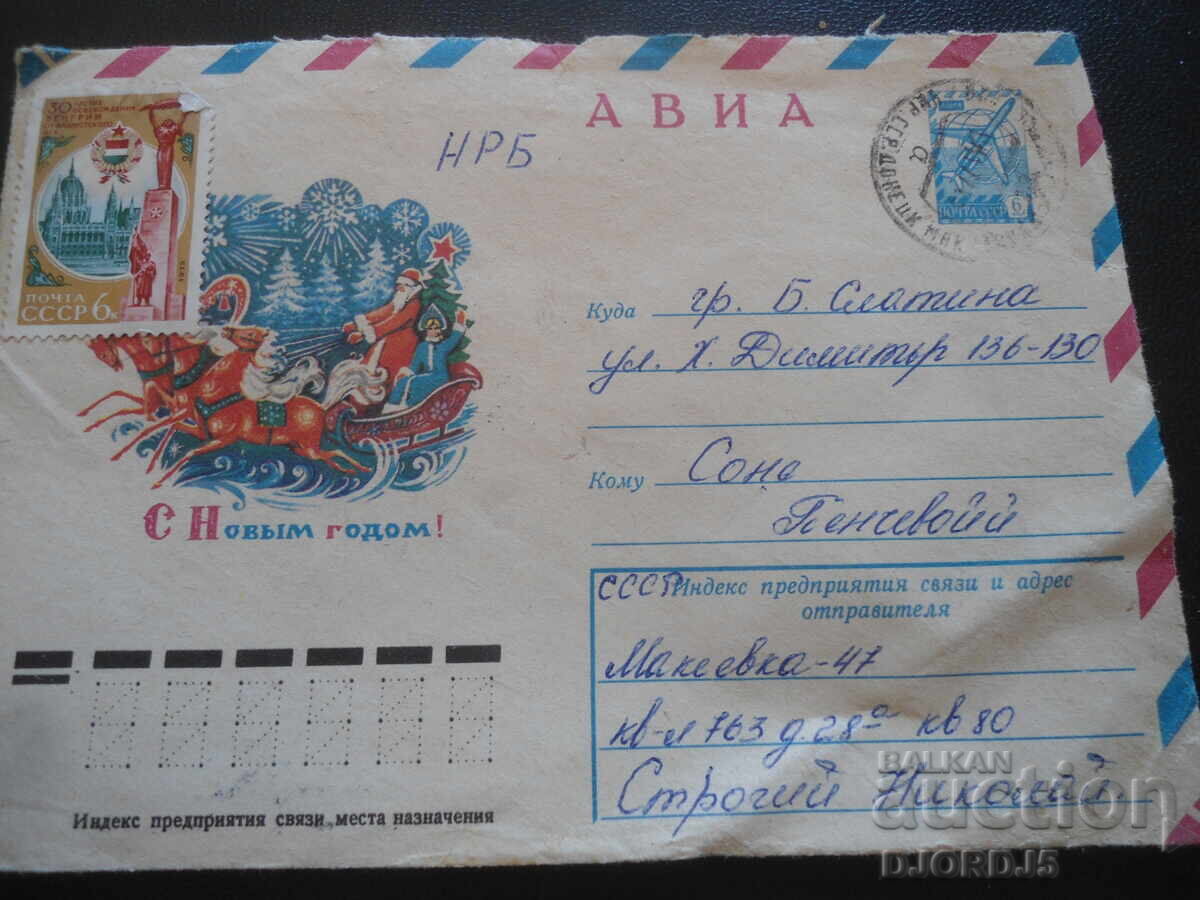 АВИА
НРБ
30-ЛЕТИЕ
ОСВОБОЖДЕНИЯ
ВЕНГРИИ
ОТ ФАШИСТСКОГО
1975
ПОЧТА
СССР 6к
ПОЧТА СССР 6
СССР ДОНЕЦК
Куда гр. Б. Слатина
ул. Х. Димитър 136-130
Кому Соне
Пенчевойй
С Новым годом!
СССР Индекс предприятия связи и адрес
отправителя
Макеевка-47
кв-л 763 д. 28а кв 80
Строгий Николай
Индекс предприятия связи места назначения
BALKAN
auction
DJORDJ5